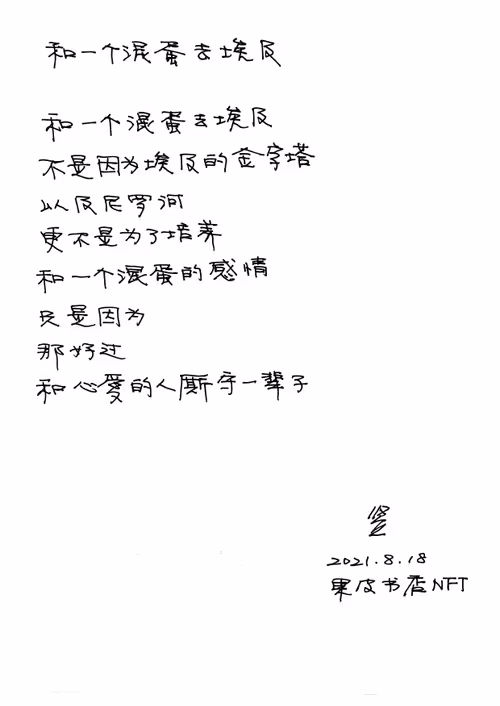 和一个混蛋去埃及
和一个混蛋去埃及
不是因为埃及的金字塔
以及尼罗河
更不是为了培养
和一个混蛋的感情
只是因为
那好过
和心爱的人厮守一辈子
竖
2021.8.18
果皮书店NFT